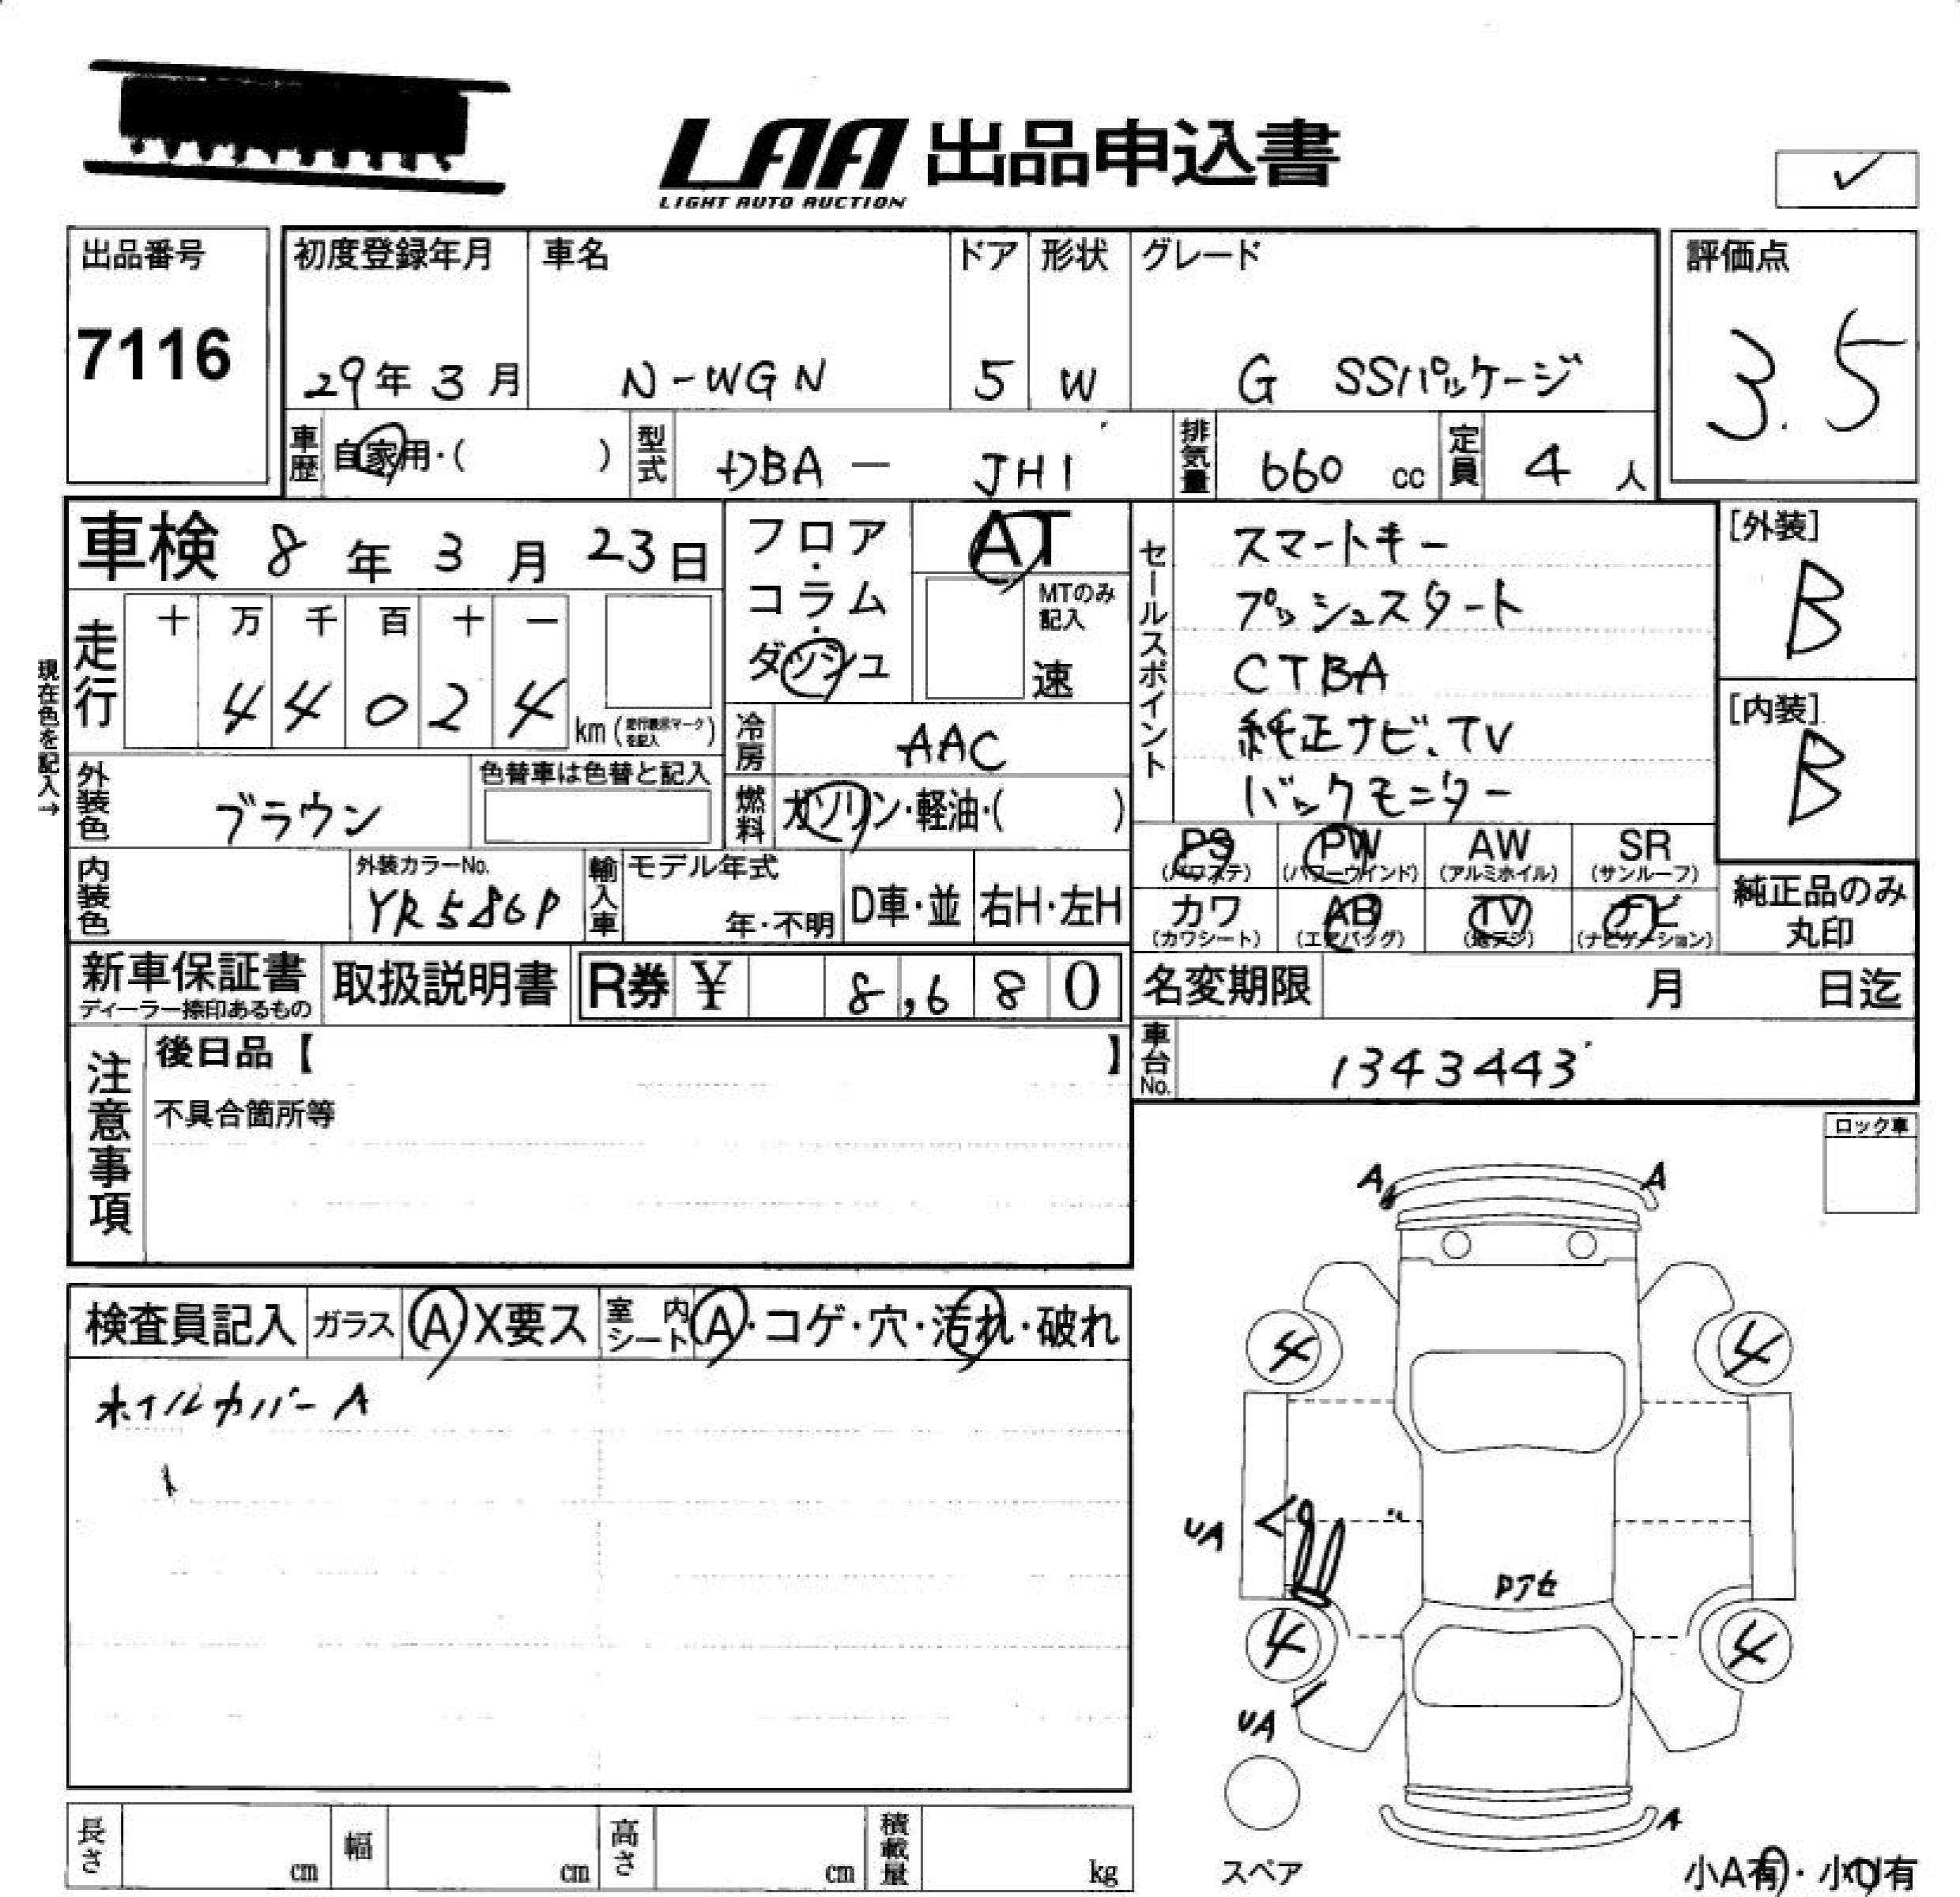 LAA 出品申込書
LIGHT AUTO AUCTION
出品番号 7116
初度登録年月 29年3月
車名 N-WGN
ドア 5
形状 W
グレード G SSパッケージ
評価点 3.5
車歴 自家用・( )
型式 DBA - JH1
排気量 660 cc
定員 4 人
車検 8年3月23日
フロア・コラム・ダッシュ
AT
MTのみ記入
速
走行 十 万 千 百 十 一
4 4 0 2 4 km (走行表示マークを記入)
現在色を記入→
冷房 AAC
外装色 ブラウン
色替車は色替と記入
燃料 ガソリン・軽油・( )
内装色
外装カラーNo. YR586P
輸入車 モデル年式 年・不明
D車・並 右H・左H
セールスポイント
スマートキー
プッシュスタート
CTBA
純正ナビ、TV
バックモニター
[外装] B
[内装] B
PS (パワステ) PW (パワーウインド) AW (アルミホイル) SR (サンルーフ)
カワ (カワシート) AB (エアバッグ) TV (地デジ) ナビ (ナビゲーション)
純正品のみ丸印
新車保証書
ディーラー捺印あるもの
取扱説明書
R券 ¥ 8,680
名変期限 月 日迄
車台No. 1343443
注意事項
後日品【 】
不具合箇所等
ロック車
検査員記入 ガラス A X要ス 室内シート A・コゲ・穴・汚れ・破れ
ホイルカバーA
A A
4 4
UA
Dアセ
4 4
UA
A
スペア
小A有・小U有
長さ cm 幅 cm 高さ cm 積載量 kg